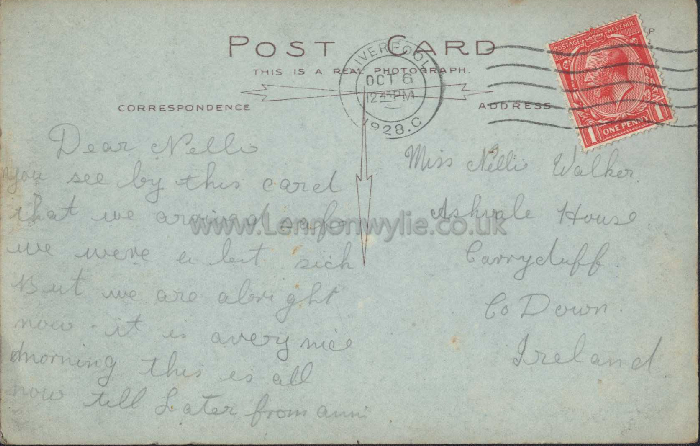 POST CARD
THIS IS A REAL PHOTOGRAPH.
LIVERPOOL
OCT 6
1928.C
CORRESPONDENCE
ADDRESS
ONE PENNY
Dear Nelli
you see by this card
that we arrived safe
we were a bit sick
But we are alright
now it is a very nice
morning this is all
now till Later from ann
Miss Nelli Walker
Ashvale House
Carryduff
Co Down
Ireland
www.Lennonwylie.co.uk